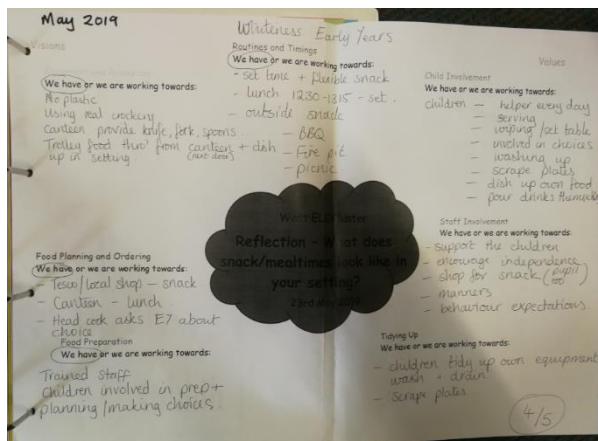 May 2019
Whiteness Early Years
Visions
We have or we are working towards:
No plastic
Using real crockery
Canteen provide knife, fork, spoons.
Trolley food thro' from canteen + dish
up in setting. (next door)
Routines and Timings
We have or we are working towards:
- set time + flexible snack
- lunch 1230-1315 - set.
- outside snack
- BBQ
- Fire pit
- picnic
Values
Child Involvement
We have or we are working towards:
children - helper every day
- serving
- wiping/set table
- involved in choices
- washing up
- scrape plates
- dish up own food
- pour drinks themselves
West ELC Cluster
Reflection - What does
snack/mealtimes look like in
your setting?
23rd May 2019
Staff Involvement
We have or we are working towards:
- support the children
- encourage independence
- shop for snack (pupil too)
- manners
- behaviour expectations.
Food Planning and Ordering
We have or we are working towards:
- Tesco/local shop - snack
- Canteen - lunch.
- Head cook asks E7 about
choice
Food Preparation
We have or we are working towards:
Trained staff
Children involved in prep +
planning/making choices.
Tidying Up
We have or we are working towards:
- children tidy up own equipment
wash + drain
- scrape plates
4/5